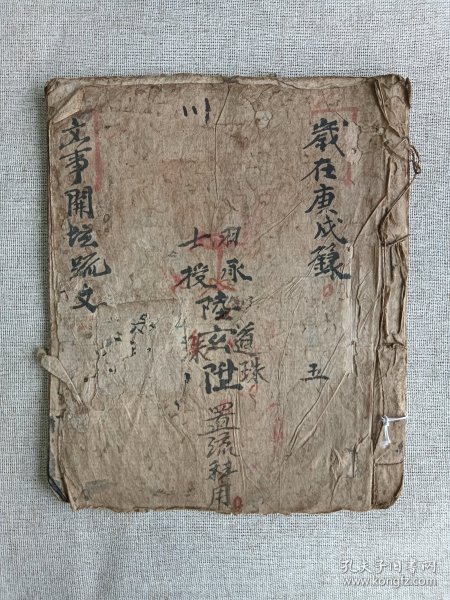 歲在庚戌錄
五
川
羽士
承授
道珠
陸宏陞
置流祕用
文事開壇疏文
孔夫子旧书网
www.kongfz.com